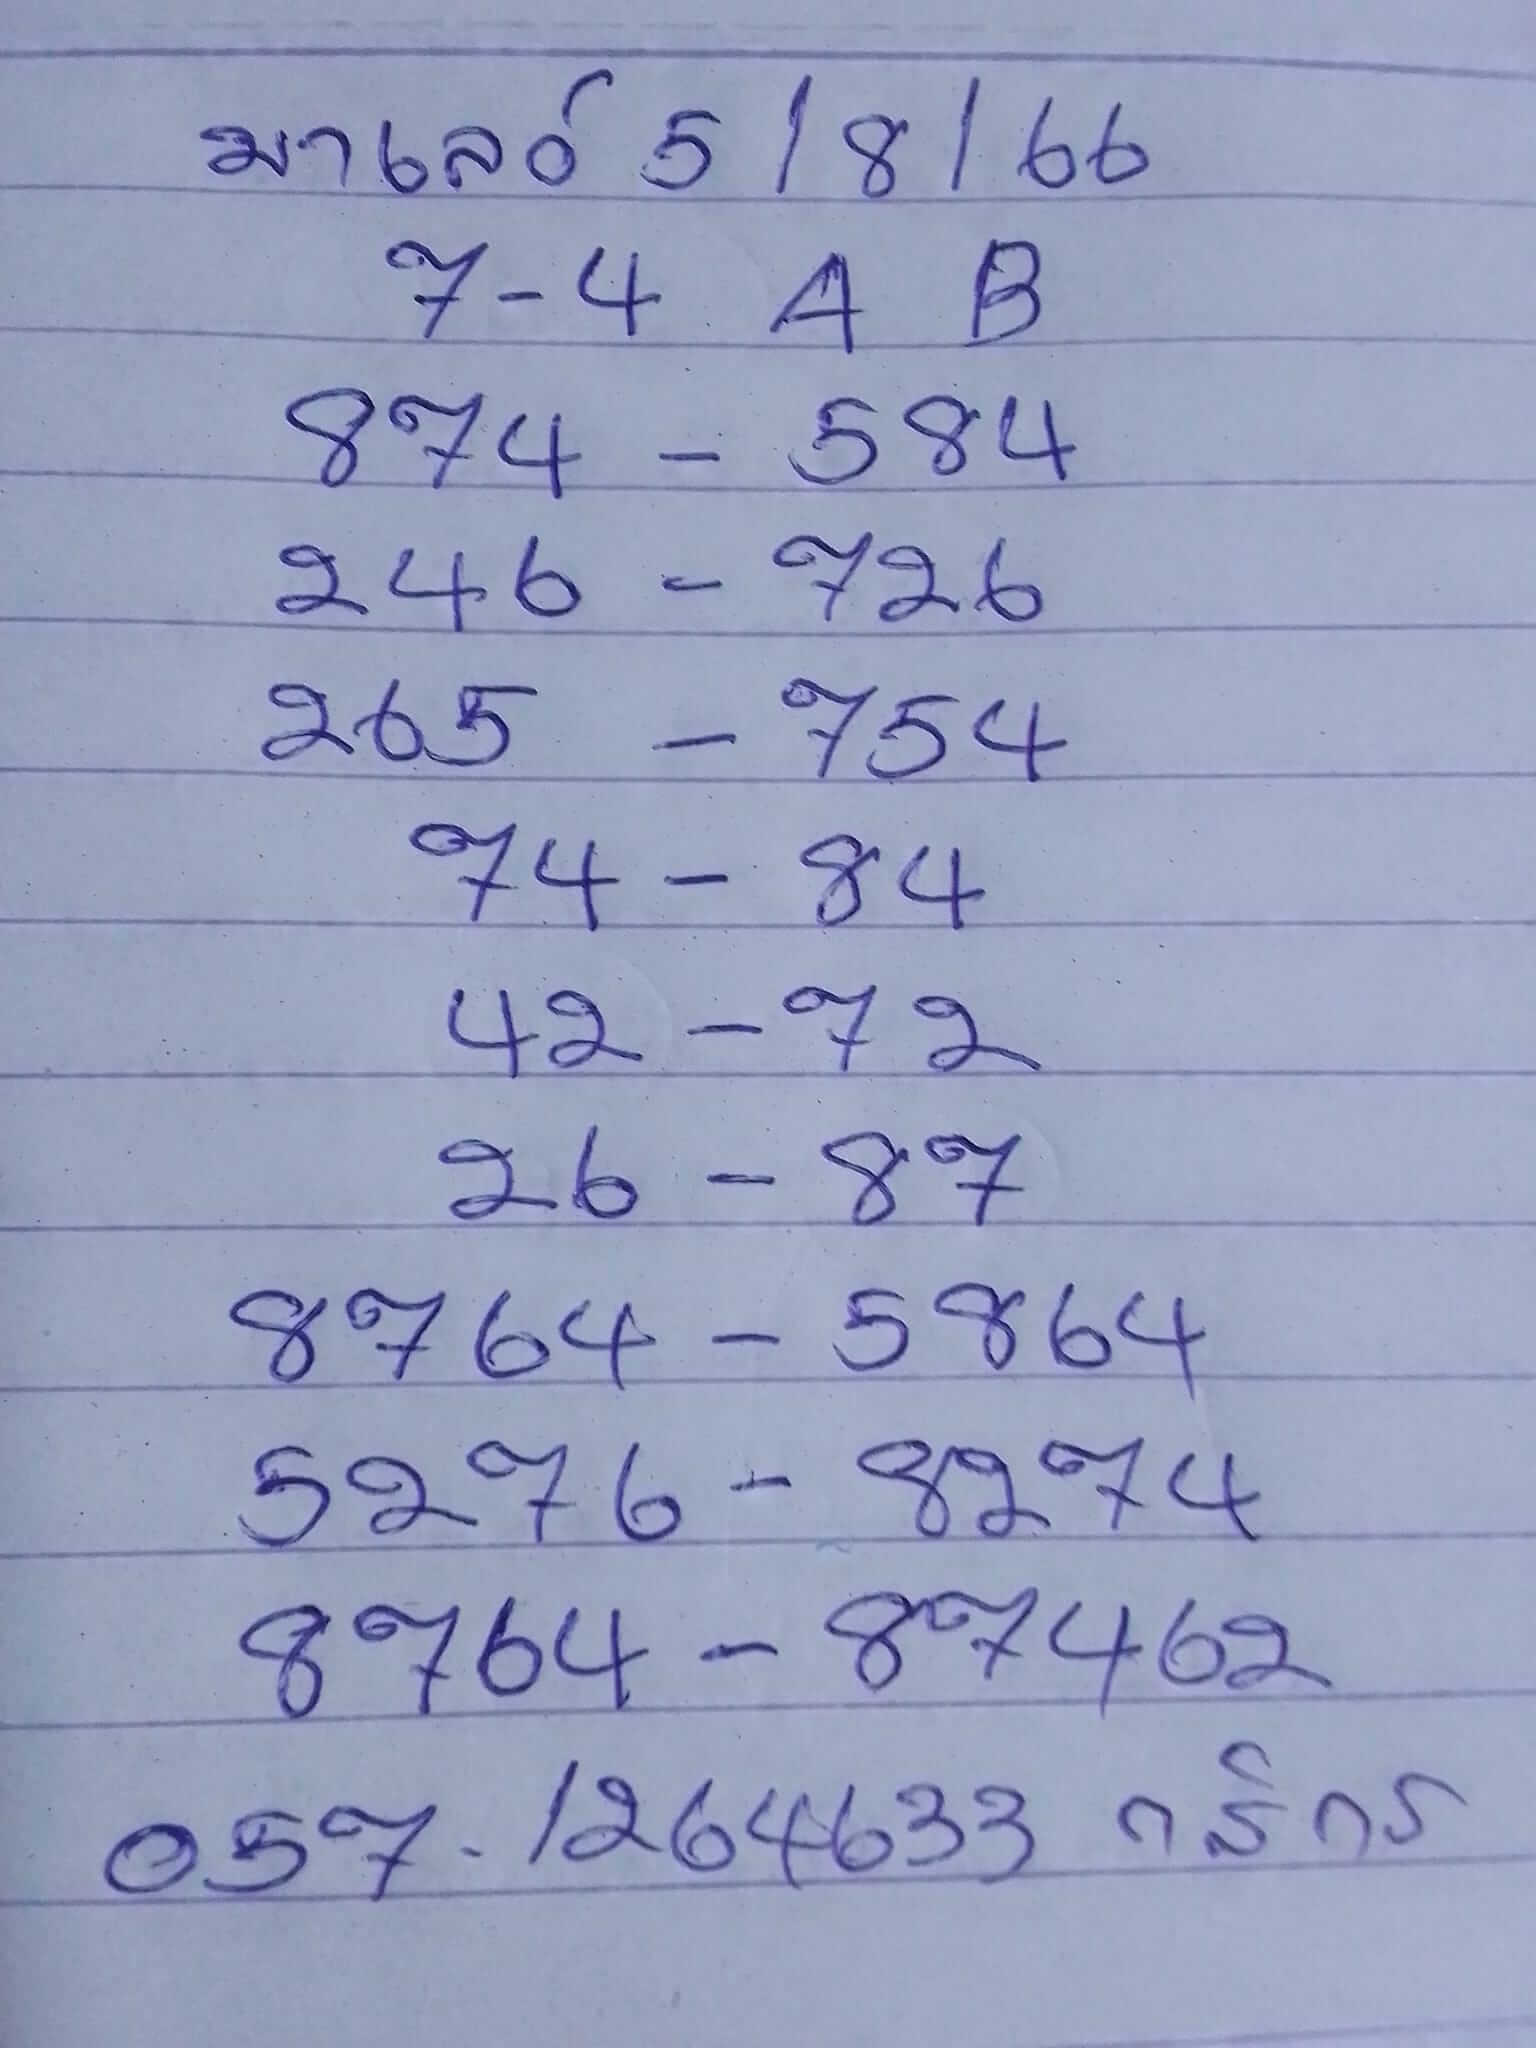 มาเลย์ 5/8/66
7-4 A B
874 - 584
246 - 726
265 - 754
74 - 84
42 - 72
26 - 87
8764 - 5864
5276 - 8274
8764 - 87462
057.1264633 กสิกร